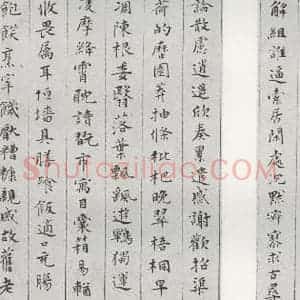 解組誰逼索居閒處沉默寂寥求古尋
論散慮逍遙欣奏累遣慼謝歡招渠
荷的歷園莽抽條枇杷晚翠梧桐早
凋陳根委翳落葉飄颻遊鵾獨運
凌摩絳霄耽讀翫市寓目囊箱易輶
攸畏屬耳垣墻具膳飡飯適口充腸
飽飫烹宰饑厭糟糠親戚故舊老
Shufaziliao.com